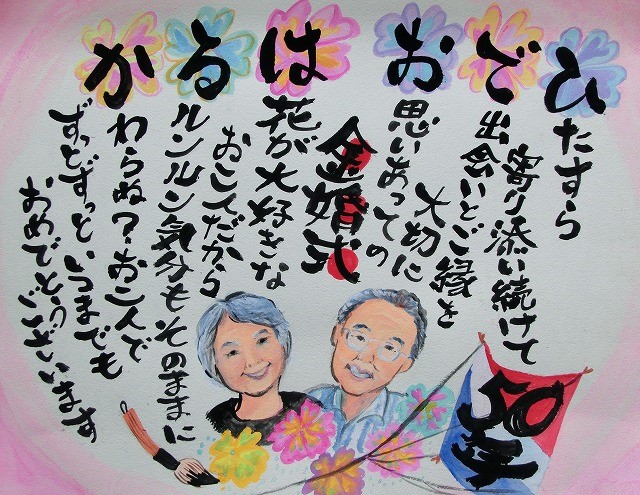 ひたすら
寄り添い続けて
で
出会いとご縁を
大切に
お
思いあっての
金婚式
は
花が大好きな
お二人だから
る
ルンルン気分もそのままに
か
わらね？お二人で
ずっとずっといつまでも
おめでとうございます
50年